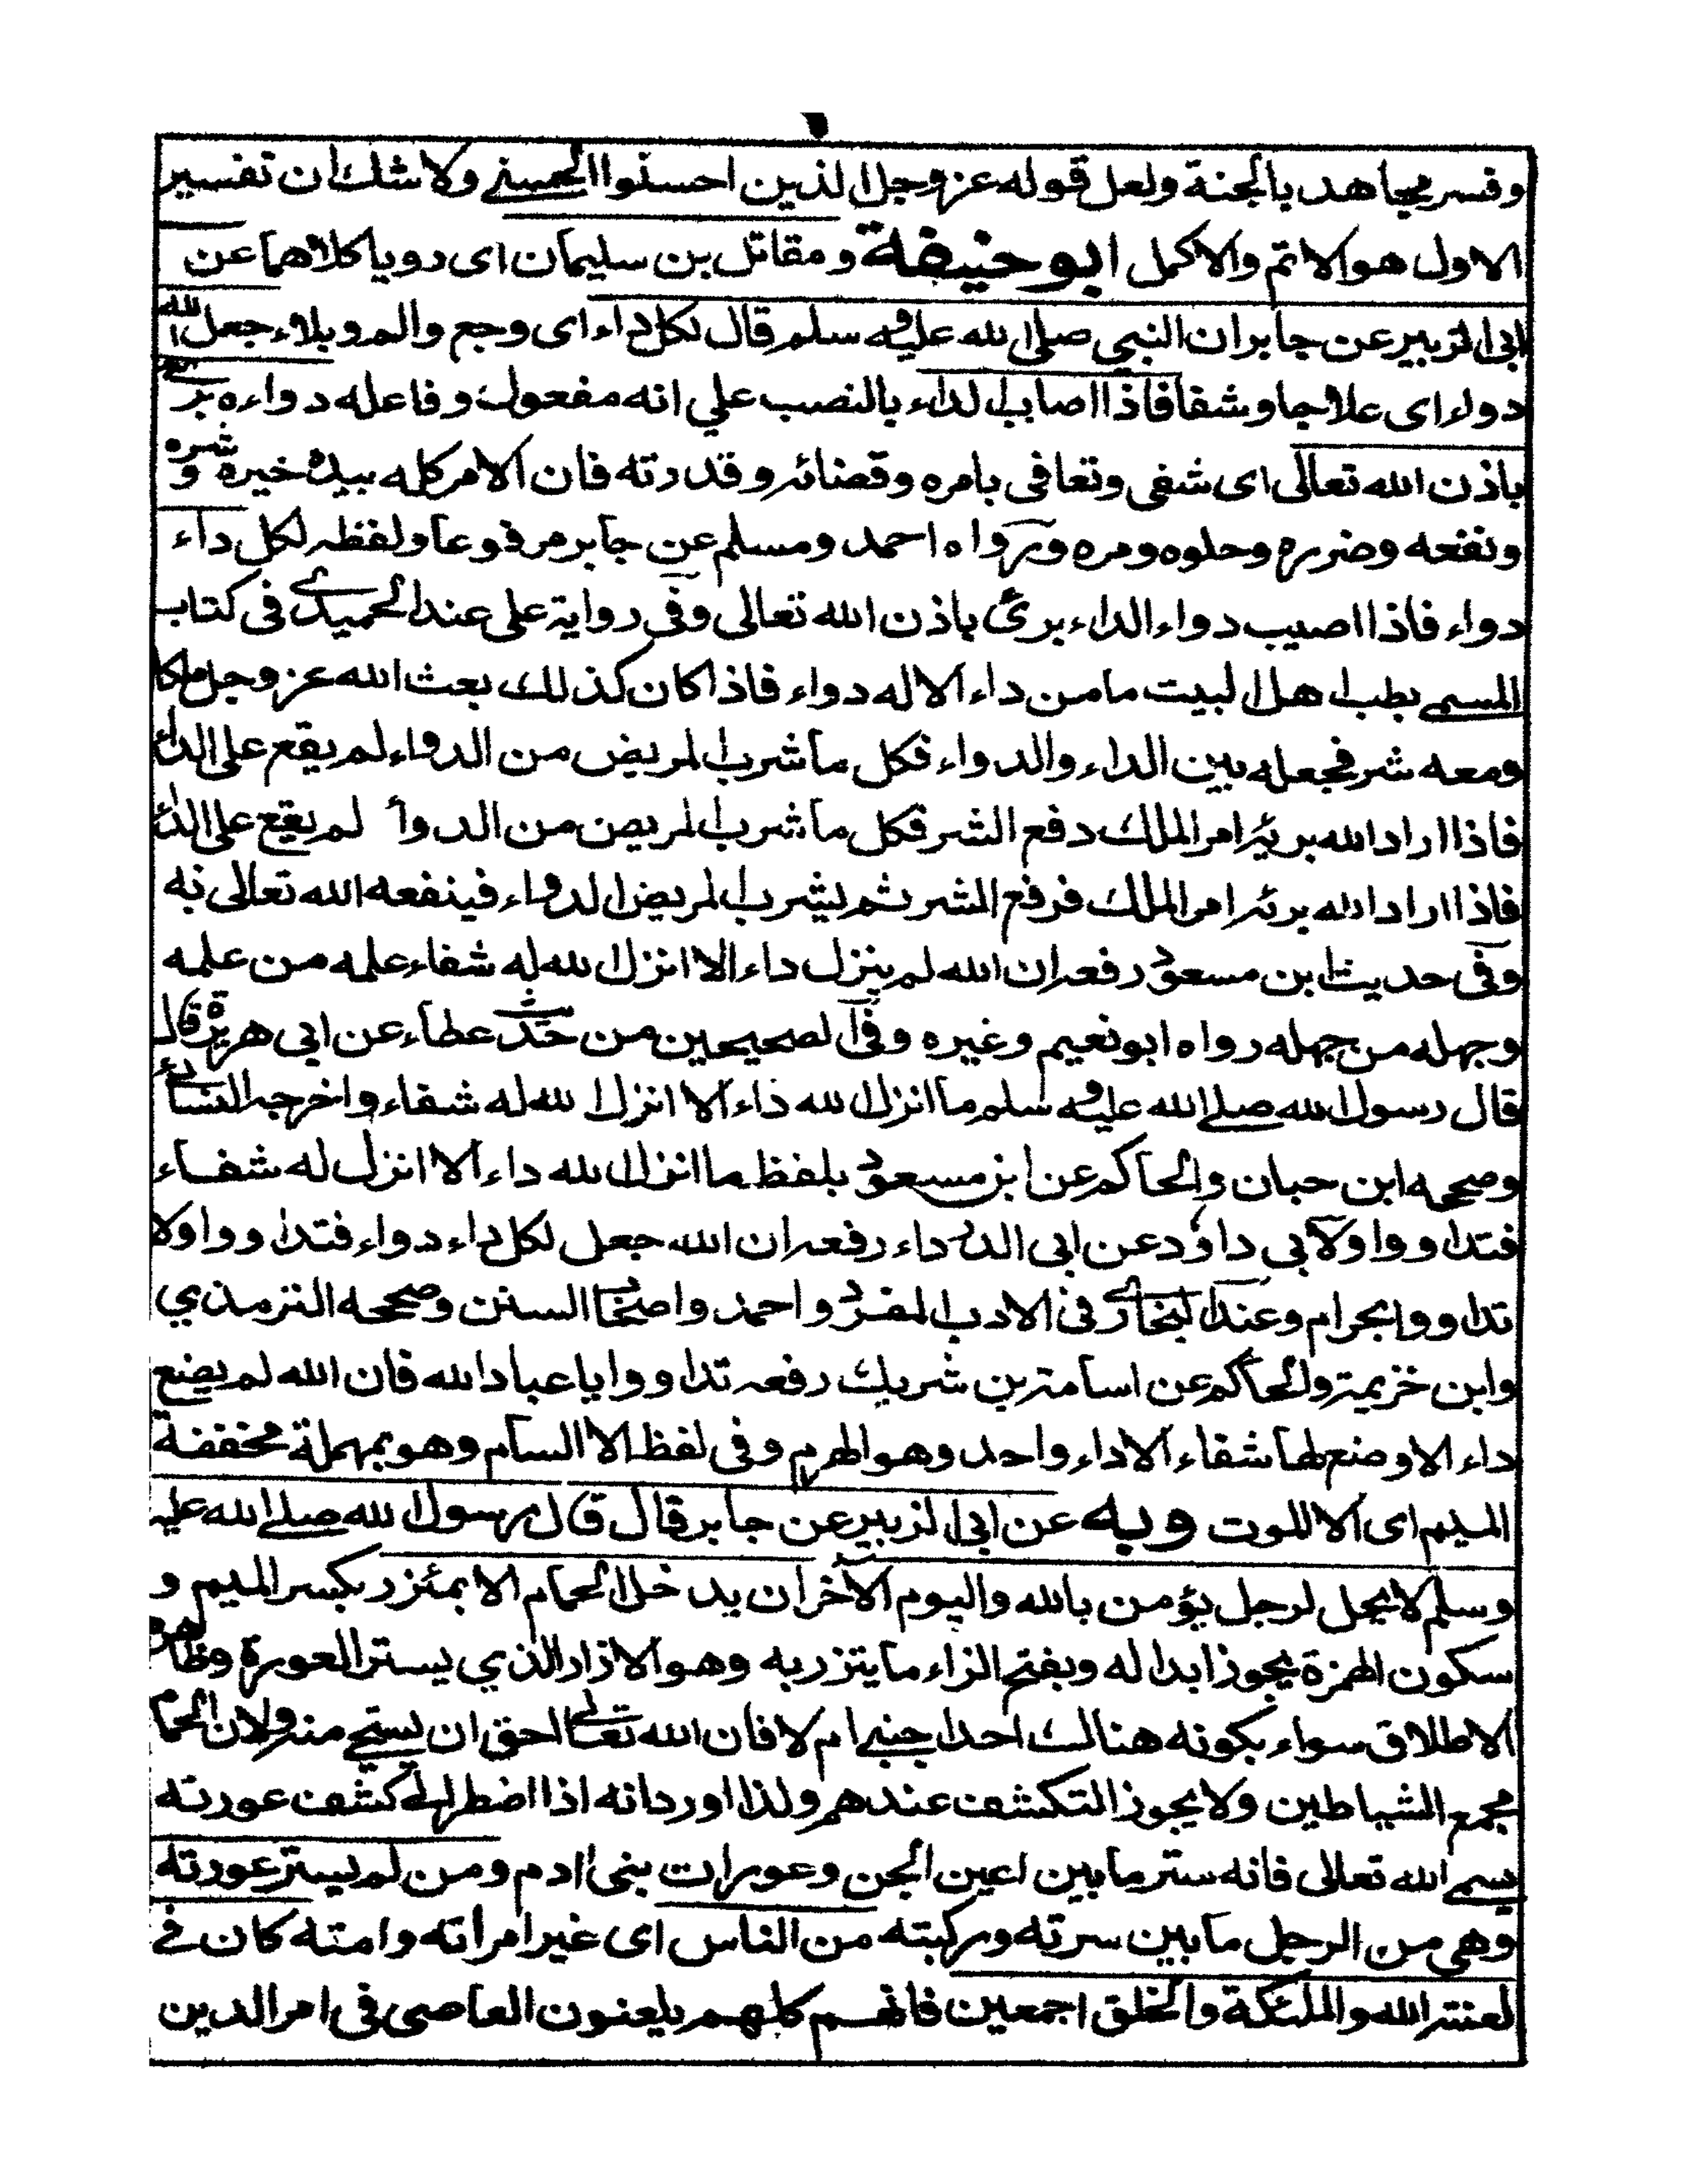 وفسر مجاهد بالجنة ولعل قوله عز وجل الذين احسنوا الحسنى ولا شك ان تفسير
الاول هو الاتم والاكمل ابو حنيفة ومقاتل بن سليمان اى رويا كلاهما عن
ابى الزبير عن جابر ان النبي صلى الله عليه وسلم قال لكل داء اى وجع والم وبلاء جعل الله
دواء اى علاجا وشفا فاذا اصاب الداء بالنصب علي انه مفعول وفاعله دواءه برئ
باذن الله تعالى اى شفى وتعافى بامره وقضائه وقدرته فان الامر كله بيده خيره وشره
ونفعه وضرره وحلوه ومره ورواه احمد ومسلم عن جابر مرفوعا ولفظه لكل داء
دواء فاذا اصيب دواء الداء برئ باذن الله تعالى وفى رواية على عند الحميدى فى كتاب
المسمى بطب اهل البيت ما من داء الا له دواء فاذا كان كذلك بعث الله عز وجل ملكا
ومعه شر فجعله بين الداء والدواء فكل ما شرب المريض من الدواء لم يقع على الداء
فاذا اراد الله بريه امر الملك دفع الشر فكل ما شرب المريص من الدوأ لم يقع على الداء
فاذا اراد الله برئه امر الملك فرفع الشر ثم يشرب المريض الدواء فينفعه الله تعالى به
وفى حديث ابن مسعود رفعه ان الله لم ينزل داء الا انزل الله له شفاء علمه من علمه
وجهله من جهله رواه ابو نعيم وغيره وفى الصحيحين من حديث عطاء عن ابى هريرة قال
قال رسول الله صلى الله عليه وسلم ما انزل الله داء الا انزل الله له شفاء واخرجه النسائى
وصححه ابن حبان والحاكم عن ابن مسعود بلفظ ما انزل الله داء الا انزل له شفاء
فتداووا ولابى داود عن ابى الدرداء رفعه ان الله جعل لكل داء دواء فتداووا ولا
تداووا بحرام وعند البخارى فى الادب المفرد واحمد واصحاب السنن وصححه الترمذي
وابن خزيمة والحاكم عن اسامة بن شريك رفعه تداووا يا عباد الله فان الله لم يضع
داء الا وضع لها شفاء الا داء واحد وهو الهرم وفى لفظ الا السام وهو بمهملة مخففة
الميم اى الا الموت وبه عن ابى الزبير عن جابر قال قال رسول الله صلى الله عليه
وسلم لا يحل لرجل يؤمن بالله واليوم الآخر ان يدخل الحمام الا بمئزر بكسر الميم و
سكون الهمزة يجوز ابداله وبفتح الزاء ما يتزر به وهو الازار الذي يستر العورة وظاهره
الاطلاق سواء بكونه هنالك احد اجنبى ام لا فان الله تعالى احق ان يستحى منه ولان الحمام
مجمع الشياطين ولا يجوز التكشف عندهم ولذا اورد انه اذا اضطر الى كشف عورته
يسمى الله تعالى فانه ستر ما بين اعين الجن وعورات بنى ادم ومن لم يستر عورته
وهي من الرجل ما بين سرته وركبته من الناس اى غير امراته وامته كان فى
لعنة الله والملئكة والخلق اجمعين فانهم كلهم يلعنون العاصى فى امر الدين